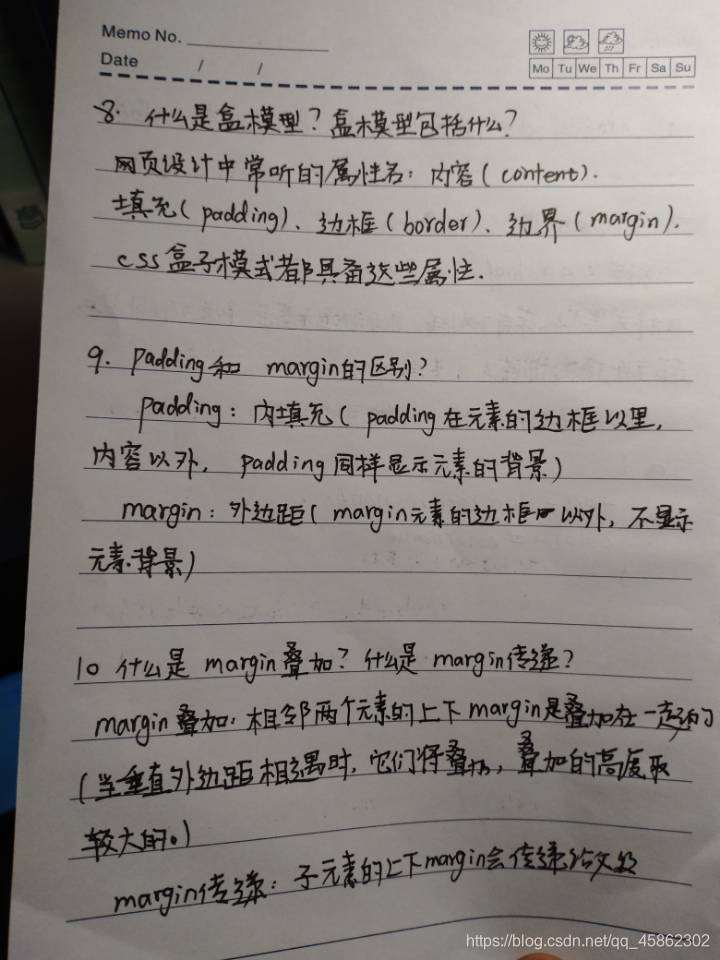 Memo No.
Date / /
Mo Tu We Th Fr Sa Su
8. 什么是盒模型？盒模型包括什么？
网页设计中常听的属性名：内容（content）.
填充（padding）、边框（border）、边界（margin）.
css盒子模式都具备这些属性.
9. padding和 margin的区别？
padding：内填充（padding在元素的边框以里，
内容以外， padding同样显示元素的背景）
margin：外边距（margin元素的边框 以外，不显示
元素背景）
10 什么是 margin叠加？什么是 margin传递？
margin叠加：相邻两个元素的上下margin是叠加在一起的
（当垂直外边距相遇时，它们将叠加，叠加的高度取
较大的。）
margin传递：子元素的上下margin会传递给父级
https://blog.csdn.net/qq_45862302